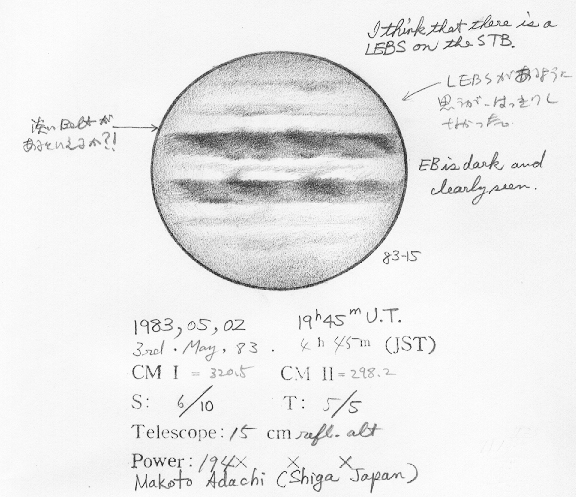 I think that there is a
LEBS on the STB.
LEBSがあるように
思うが、はっきりし
なかった。
淡いBeltが
あるといえるか?!
EB is dark and
clearly seen.
83-15
1983, 05, 02 19h45m U.T.
3rd. May, 83. 4h 45m (JST)
CM I = 320.5 CM II = 298.2
S: 6/10 T: 5/5
Telescope: 15 cm refl. alt
Power: 194× × ×
Makoto Adachi (Shiga Japan)